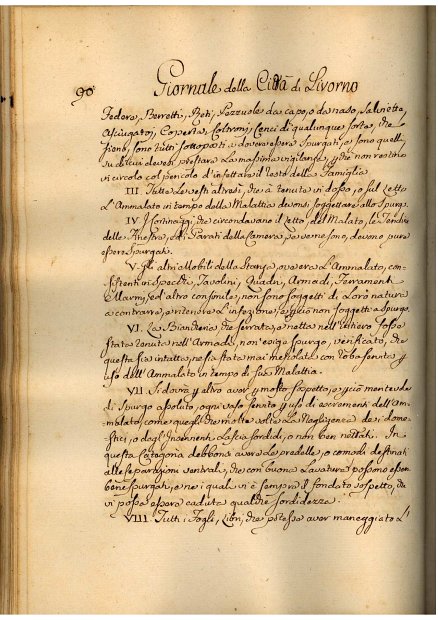 90
Giornale della Città di Livorno
Federe, Berretti, Reti, Pezzuole da capo, o da naso, Salviette,
Asciugatoj, Coperte, Coltroni, Cenci di qualunque sorta, che
sieno, sono tutti sottoposti a dover essere spurgati, e sono quelli,
su di cui devesi prestare la massima vigilanza, perchè non restino
in circolo col pericolo d'infettare il resto della Famiglia.
III. Tutte le vesti altresì, che à tenute in dosso, o sul Letto
L'Ammalato in tempo della Malattia devonsi soggettare allo Spurgo.
IV. I Cortinaggi che circondavano il Letto del Malato, le Tendine
delle Finestre, ed i Parati della Camera, se ve ne sono, devono pure
essere Spurgati.
V. Gli altri Mobili della Stanza, ove era L'Ammalato, con-
sistenti in Specchi, Tavolini, Quadri, Armadj, Ferramenti
Marmi, ed altro consimile, non sono soggetti di loro natura
a contrarre, e ritenere L'infezione, e perciò non soggetti a Spurgo.
VI. La Biancheria, che serrata, e netta nell'intiero fosse
stata tenuta nell'Armadio, non esige spurgo, verificato, che
questa sia intatta, nè sia stata mai mescolata con roba servita per
uso dell'Ammalato in tempo di sua Malattia.
VII. Si dovrà per altro aver per molto sospetto, e perciò meritevole
di Spurgo assoluto, ogni vaso servito per uso di escrementi dell'Am-
malato, come quegli che molte volte la Negligenza dei dome-
stici, o degl'Inservienti lascia sordidi, o non ben nettati. In
questa Categoria debbono aversi le predelle, o comodi destinati
alle separazioni ventrali, che con buona lavatura possono esser
bene spurgati, e ne i quali vi è sempre il fondato sospetto, che
vi possa essere caduta qualche sordidezza.
VIII. Tutti i Fogli, Libri, che potesse aver maneggiato L'